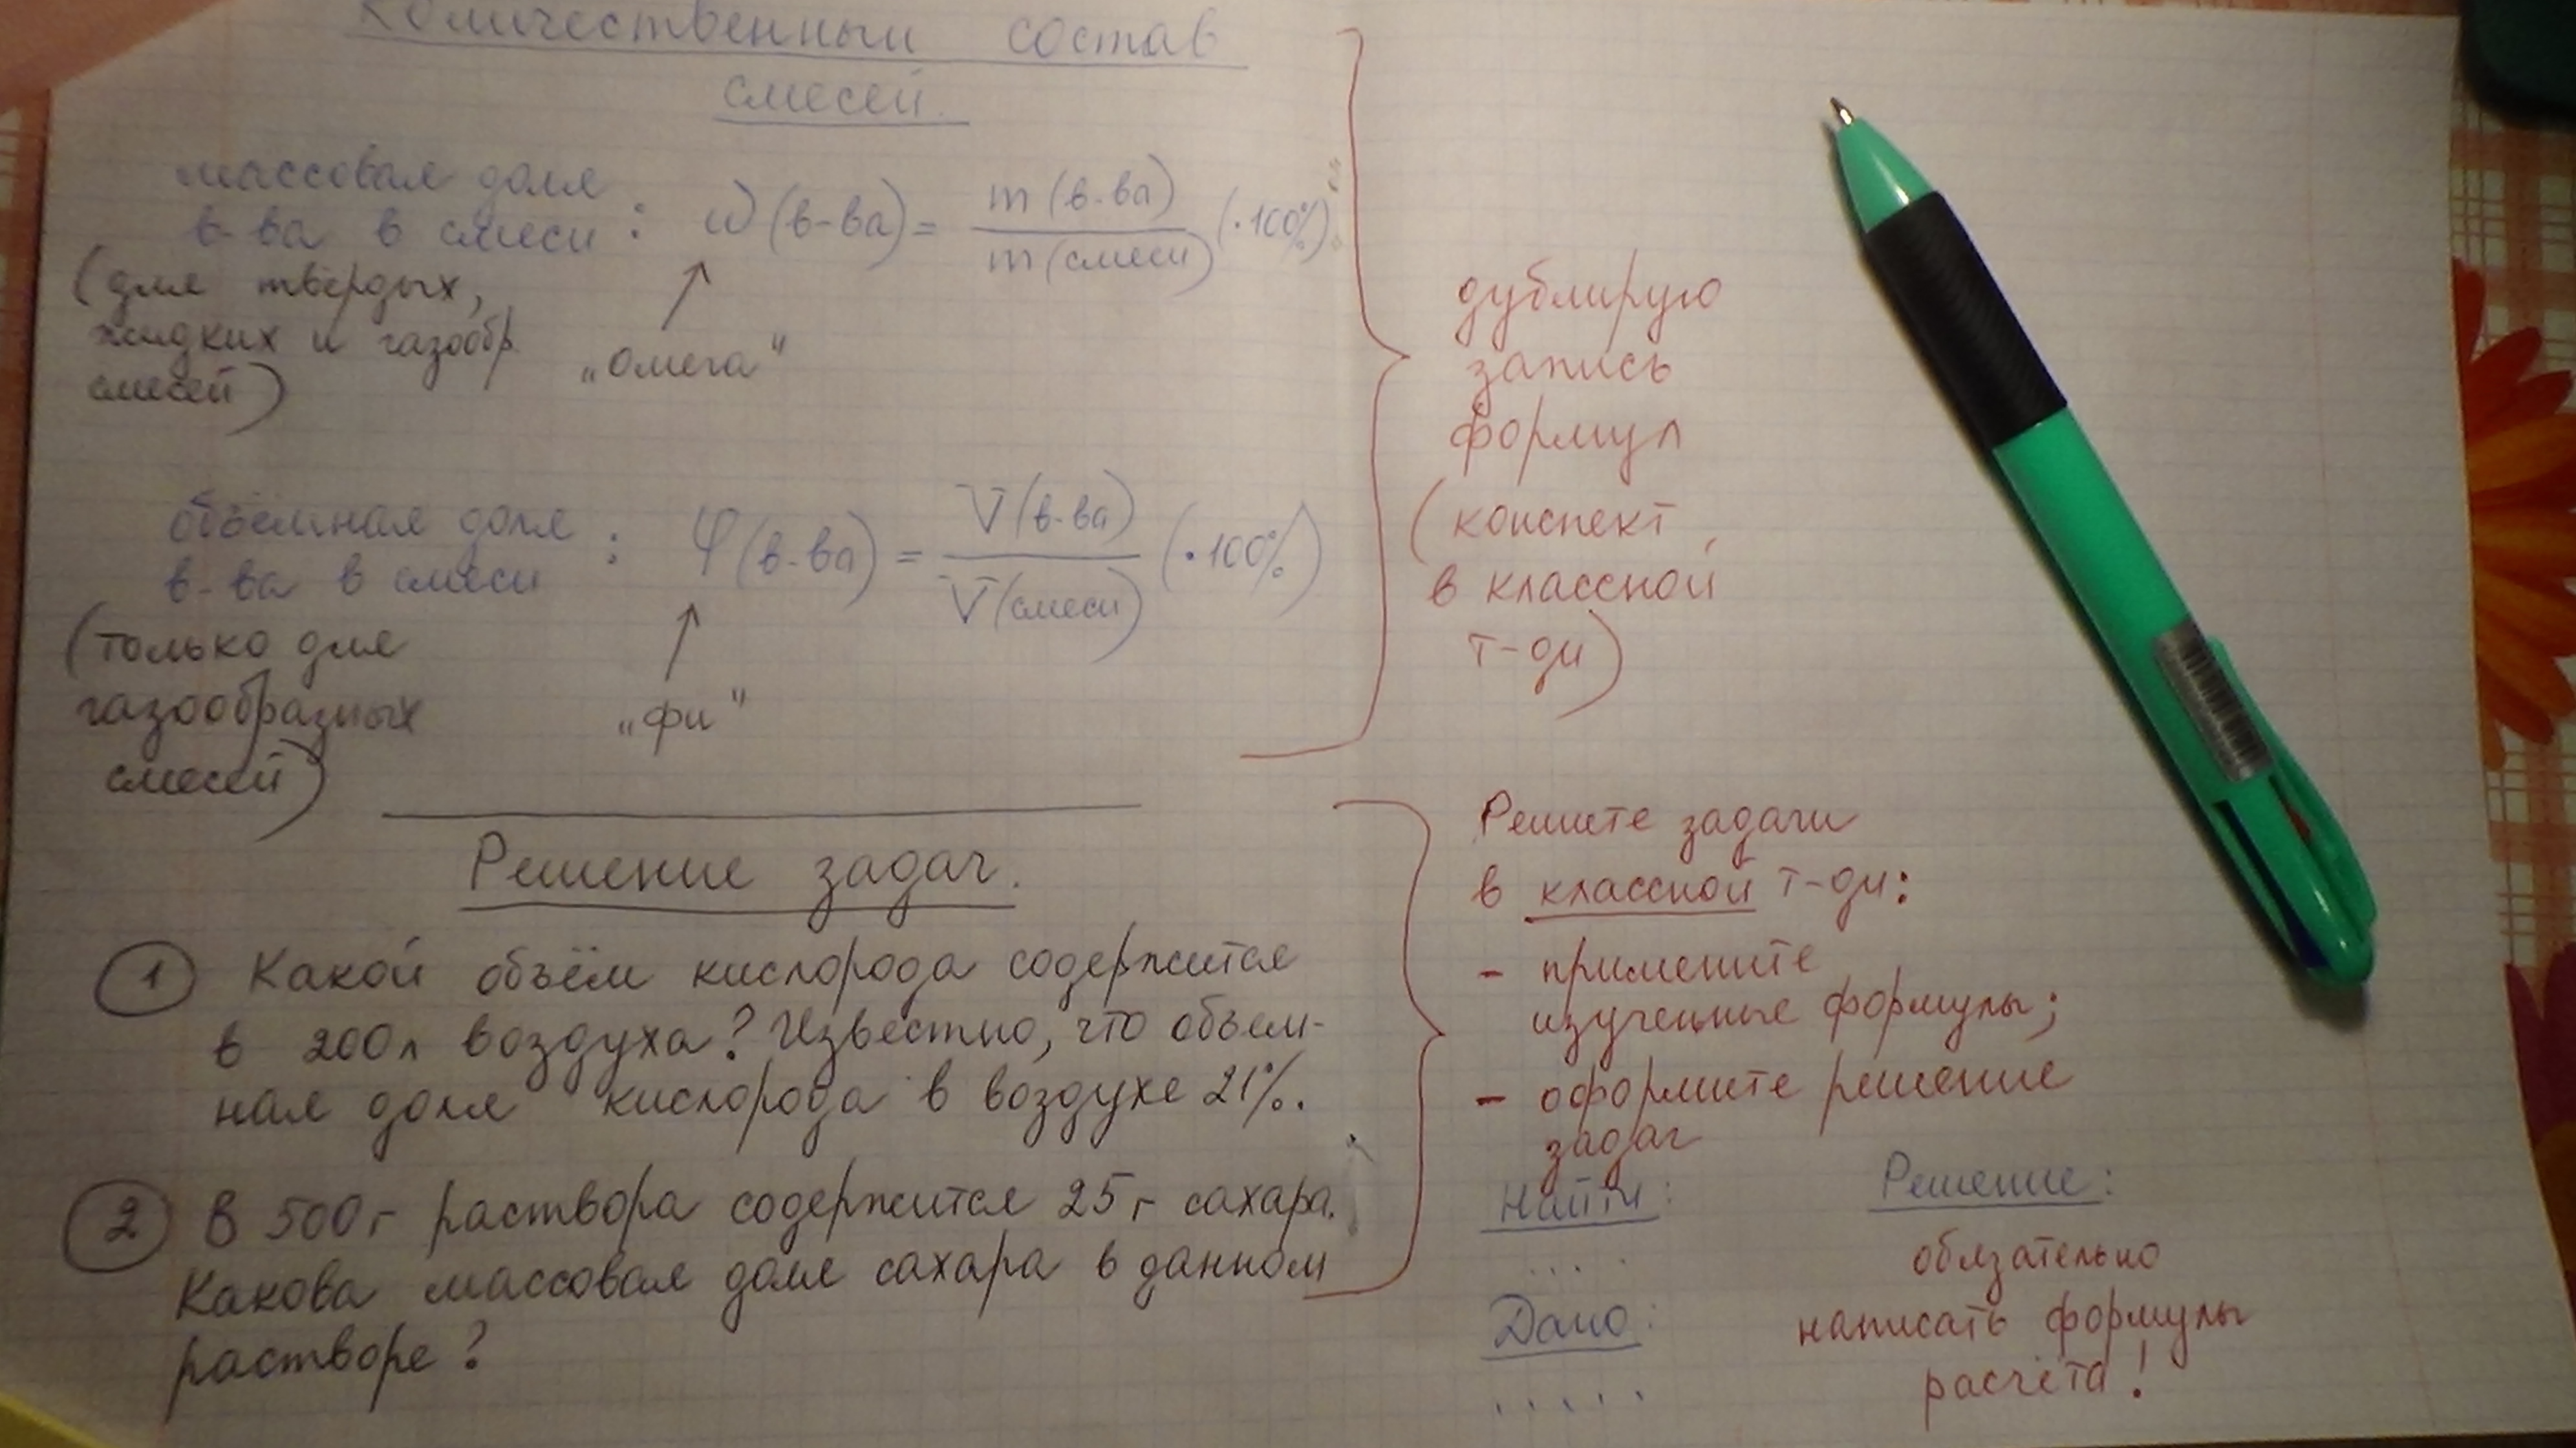 Количественный состав
смесей.
массовая доля
в-ва в смеси : ω(в-ва) = m(в-ва) / m(смеси) (·100%)
(для твёрдых,
жидких и газообр.
смесей)
„омега"
объёмная доля
в-ва в смеси : φ(в-ва) = V(в-ва) / V(смеси) (·100%)
(только для
газообразных
смесей)
„фи"
дублирую
запись
формул
(конспект
в классной
т-ди)
Решение задач.
① Какой объём кислорода содержится
в 200л воздуха? Известно, что объем-
ная доля кислорода в воздухе 21%.
② В 500г раствора содержится 25г сахара.
Какова массовая доля сахара в данном
растворе?
Решите задачи
в классной т-ди:
- примените
изученные формулы;
- оформите решение
задач
Найти:
....
Дано:
.....
Решение:
обязательно
написать формулы
расчёта!